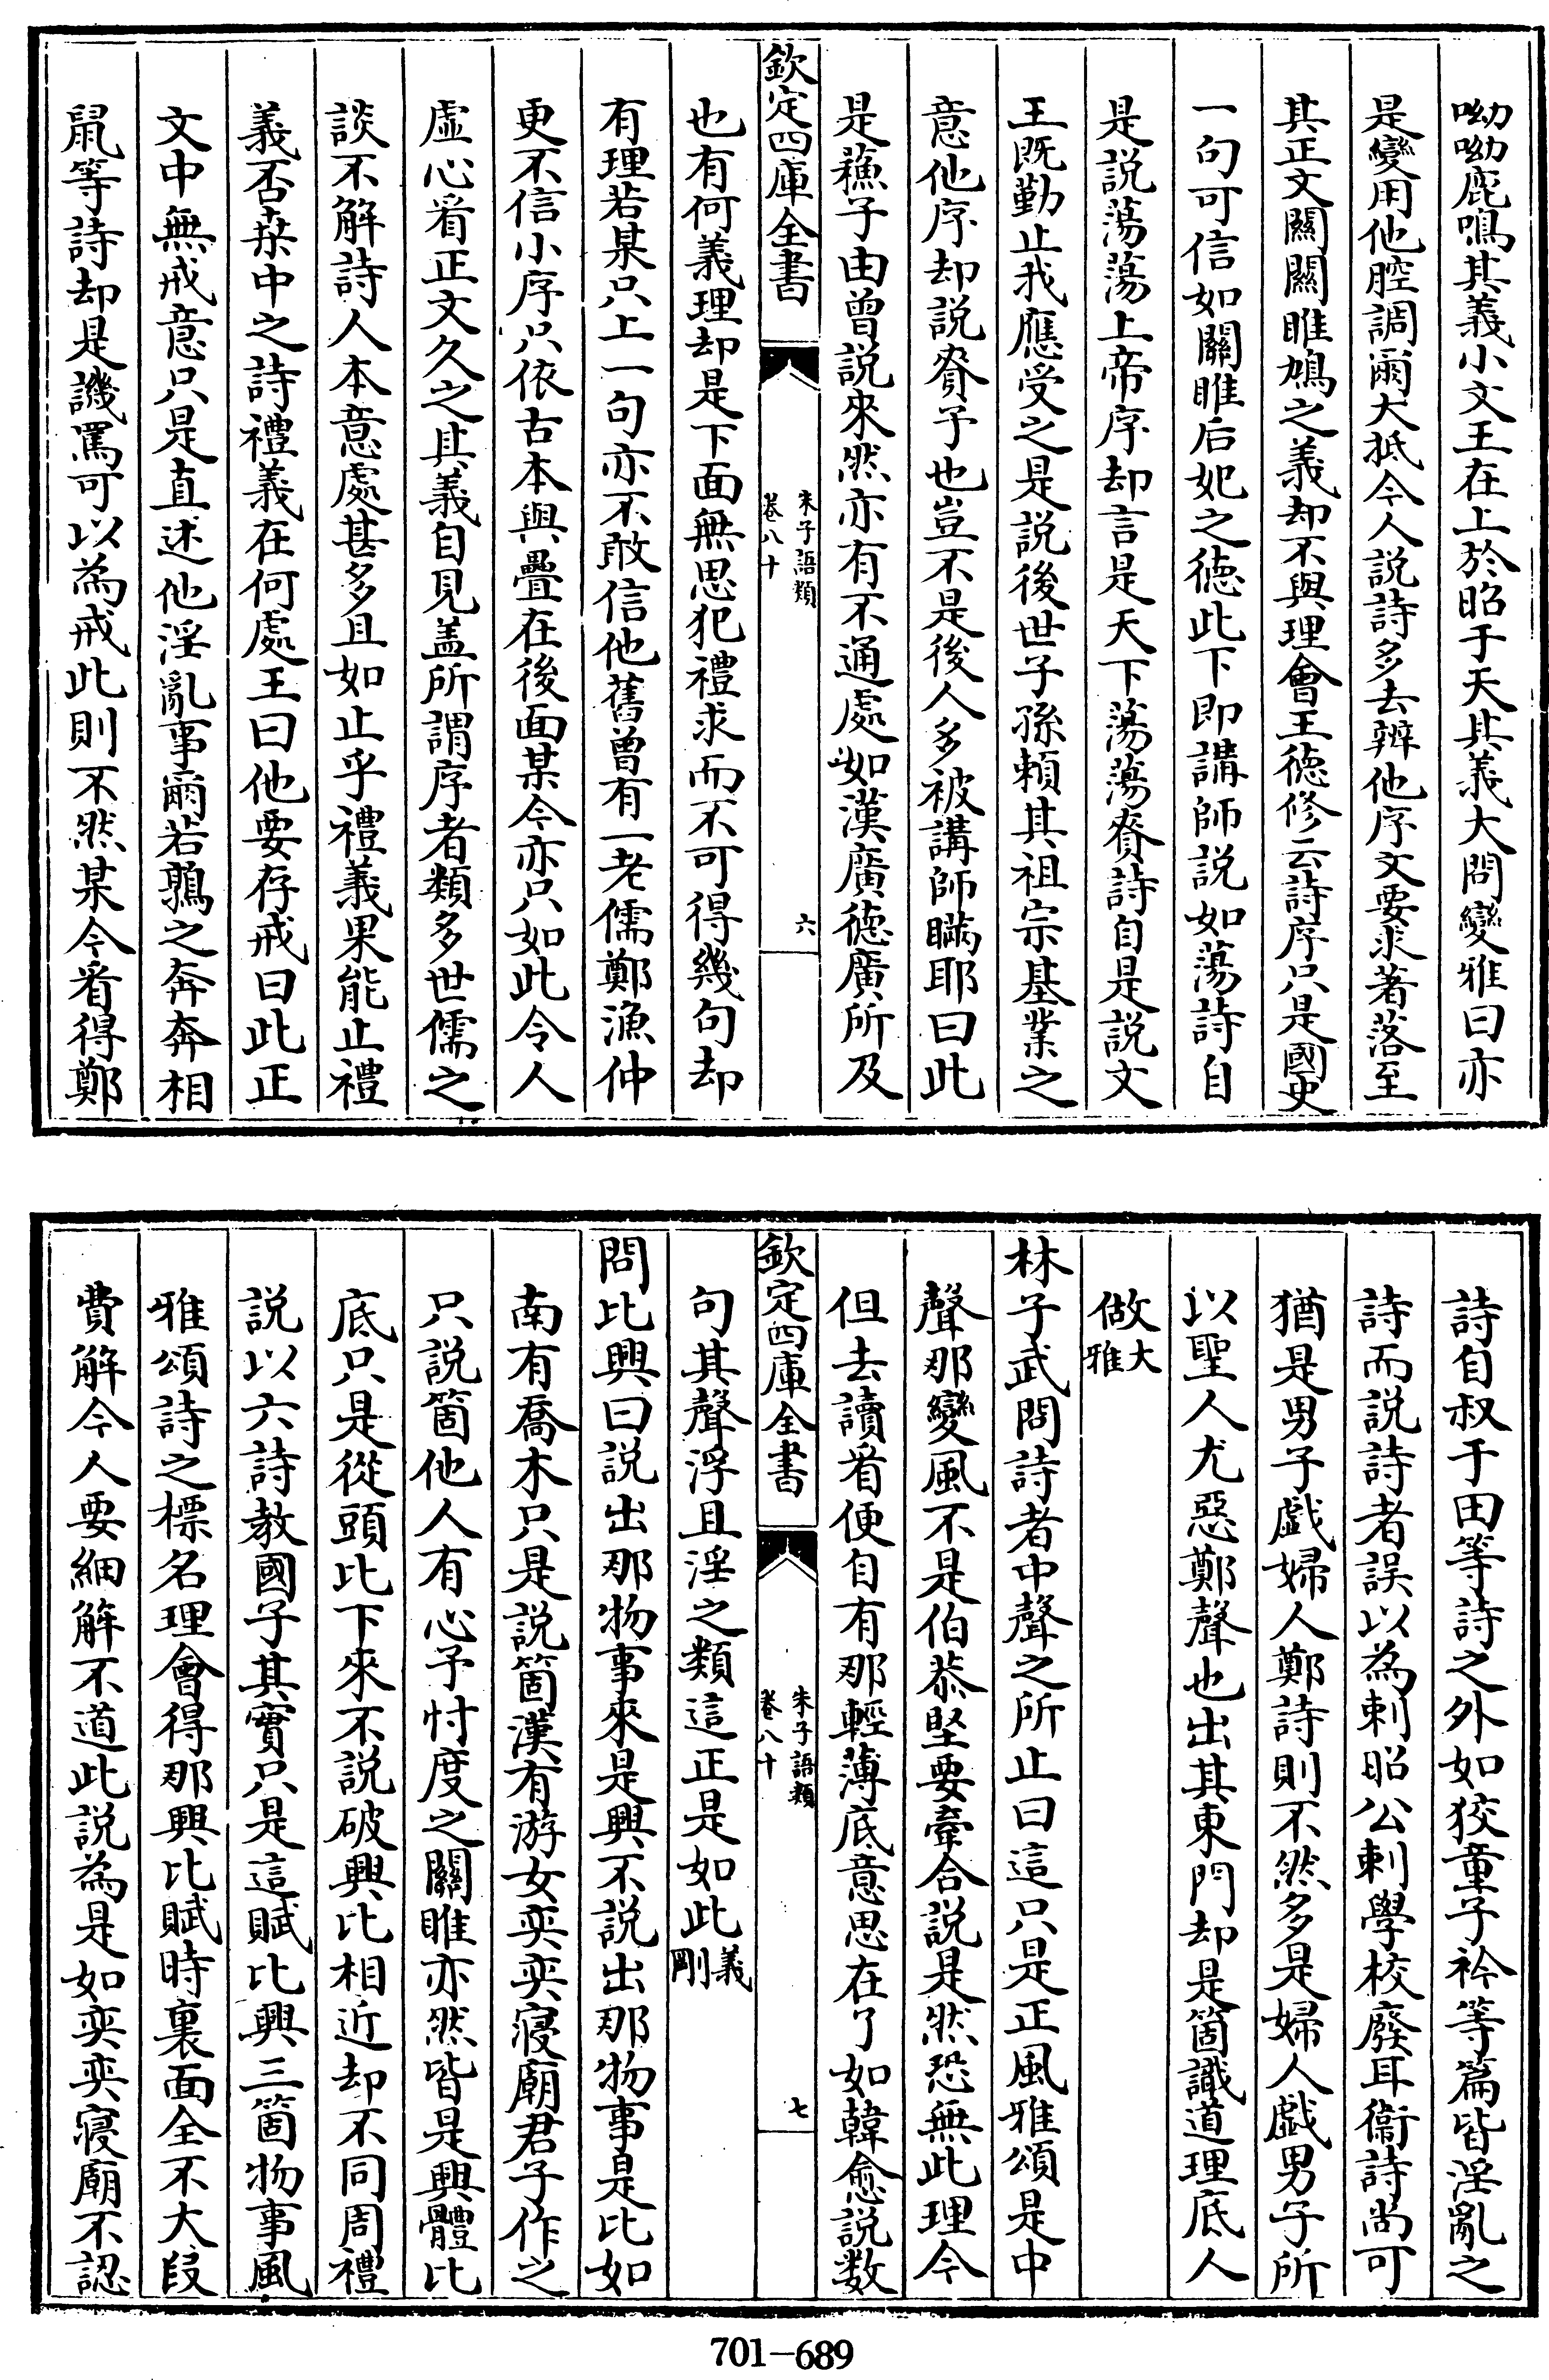 呦呦鹿鳴其義小文王在上於昭于天其義大問變雅曰亦
是變用他腔調爾大抵今人說詩多去辨他序文要求著落至
其正文關關雎鳩之義却不與理會王德修云詩序只是國史
一句可信如關雎后妃之德此下即講師說如蕩詩自
是說蕩蕩上帝序却言是天下蕩蕩賚詩自是說文
王既勤止我應受之是說後世子孫賴其祖宗基業之
意他序却說賚予也豈不是後人多被講師瞞耶曰此
是蘓子由曾說來然亦有不通處如漢廣德廣所及
欽定四庫全書
朱子語類
卷八十
六
也有何義理却是下面無思犯禮求而不可得幾句却
有理若某只上一句亦不敢信他舊曾有一老儒鄭漁仲
更不信小序只依古本與疊在後面某今亦只如此令人
虛心看正文久之其義自見盖所謂序者類多世儒之
談不解詩人本意處甚多且如止乎禮義果能止禮
義否桒中之詩禮義在何處王曰他要存戒曰此正
文中無戒意只是直述他淫亂事爾若鶉之奔奔相
鼠等詩却是譏罵可以為戒此則不然某今看得鄭
詩自叔于田等詩之外如狡童子衿等篇皆淫亂之
詩而說詩者誤以為刺昭公刺學校廢耳衞詩尚可
猶是男子戲婦人鄭詩則不然多是婦人戲男子所
以聖人尤惡鄭聲也出其東門却是箇識道理底人
做大雅
林子武問詩者中聲之所止曰這只是正風雅頌是中
聲那變風不是伯恭堅要牽合說是然恐無此理今
但去讀看便自有那輕薄底意思在了如韓愈說数
欽定四庫全書
朱子語類
卷八十
七
句其聲浮且淫之類這正是如此義剛
問比興曰說出那物事來是興不說出那物事是比如
南有喬木只是說箇漢有游女奕奕寢廟君子作之
只說箇他人有心予忖度之關雎亦然皆是興體比
底只是從頭比下來不說破興比相近却不同周禮
說以六詩教國子其實只是這賦比興三箇物事風
雅頌詩之標名理會得那興比賦時裏面全不大段
費解今人要細解不道此說為是如奕奕寢廟不認
701-689